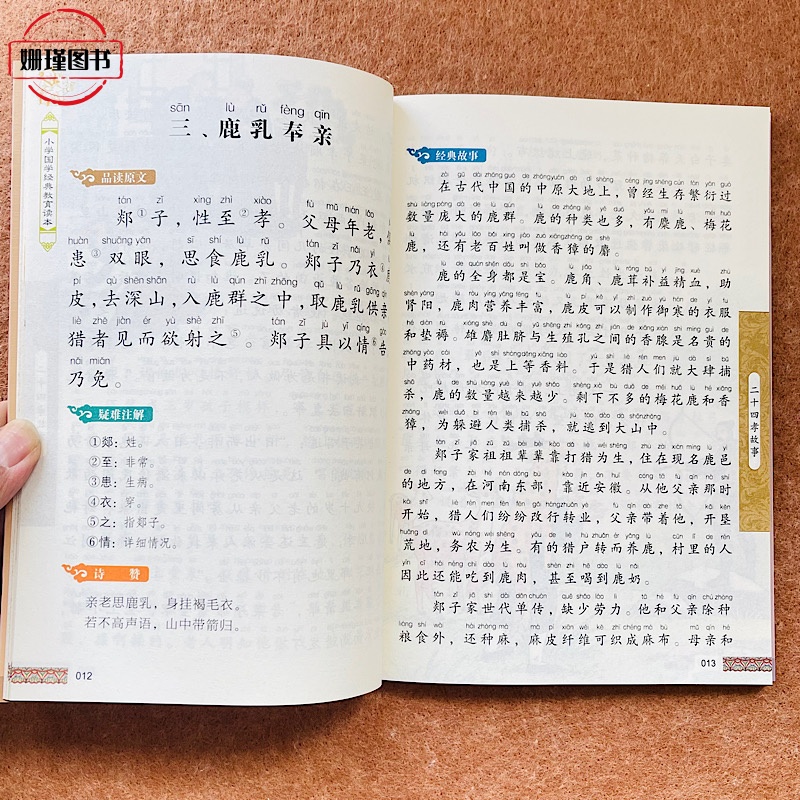 姗瑾图书
小学国学经典教育读本
sān lù rǔ fèng qīn
三、鹿乳奉亲
品读原文
郯①子，性至②孝。父母年老，
患③双眼，思食鹿乳。郯子乃衣④
皮，去深山，入鹿群之中，取鹿乳供亲
猎者见而欲射之⑤。郯子具以情⑥告
乃免。
疑难注解
①郯：姓。
②至：非常。
③患：生病。
④衣：穿。
⑤之：指郯子。
⑥情：详细情况。
诗 赞
亲老思鹿乳，身挂褐毛衣。
若不高声语，山中带箭归。
012
经典故事
在古代中国的中原大地上，曾经生存繁衍过
数量庞大的鹿群。鹿的种类也多，有麋鹿、梅花
鹿，还有老百姓叫做香獐的麝。
鹿的全身都是宝。鹿角、鹿茸补益精血，助
肾阳，鹿肉营养丰富，鹿皮可以制作御寒的衣服
和垫褥。雄麝肚脐与生殖孔之间的香腺是名贵的
中药材，也是上等香料。于是猎人们就大肆捕
杀，鹿的数量越来越少。剩下不多的梅花鹿和香
獐，为躲避人类捕杀，就逃到大山中。
郯子家祖祖辈辈靠打猎为生，住在现名鹿邑
的地方，在河南东部，靠近安徽。从他父亲那时
开始，猎人们纷纷改行转业，父亲带着他，开垦
荒地，务农为生。有的猎户转而养鹿，村里的人
因此还能吃到鹿肉，甚至喝到鹿奶。
郯子家世代单传，缺少劳力。他和父亲除种
粮食外，还种麻，麻皮纤维可织成麻布。母亲和
013
二十四孝故事